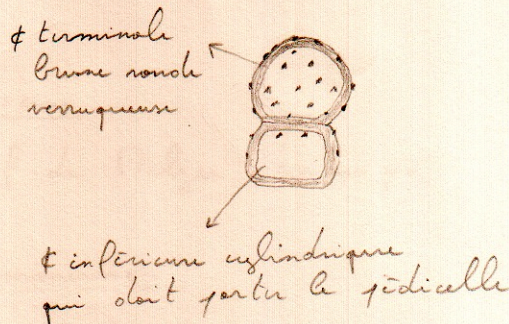 ¢ terminale
brune ronde
verruqueuse
¢ inférieure cylindrique
qui doit porter le pédicelle